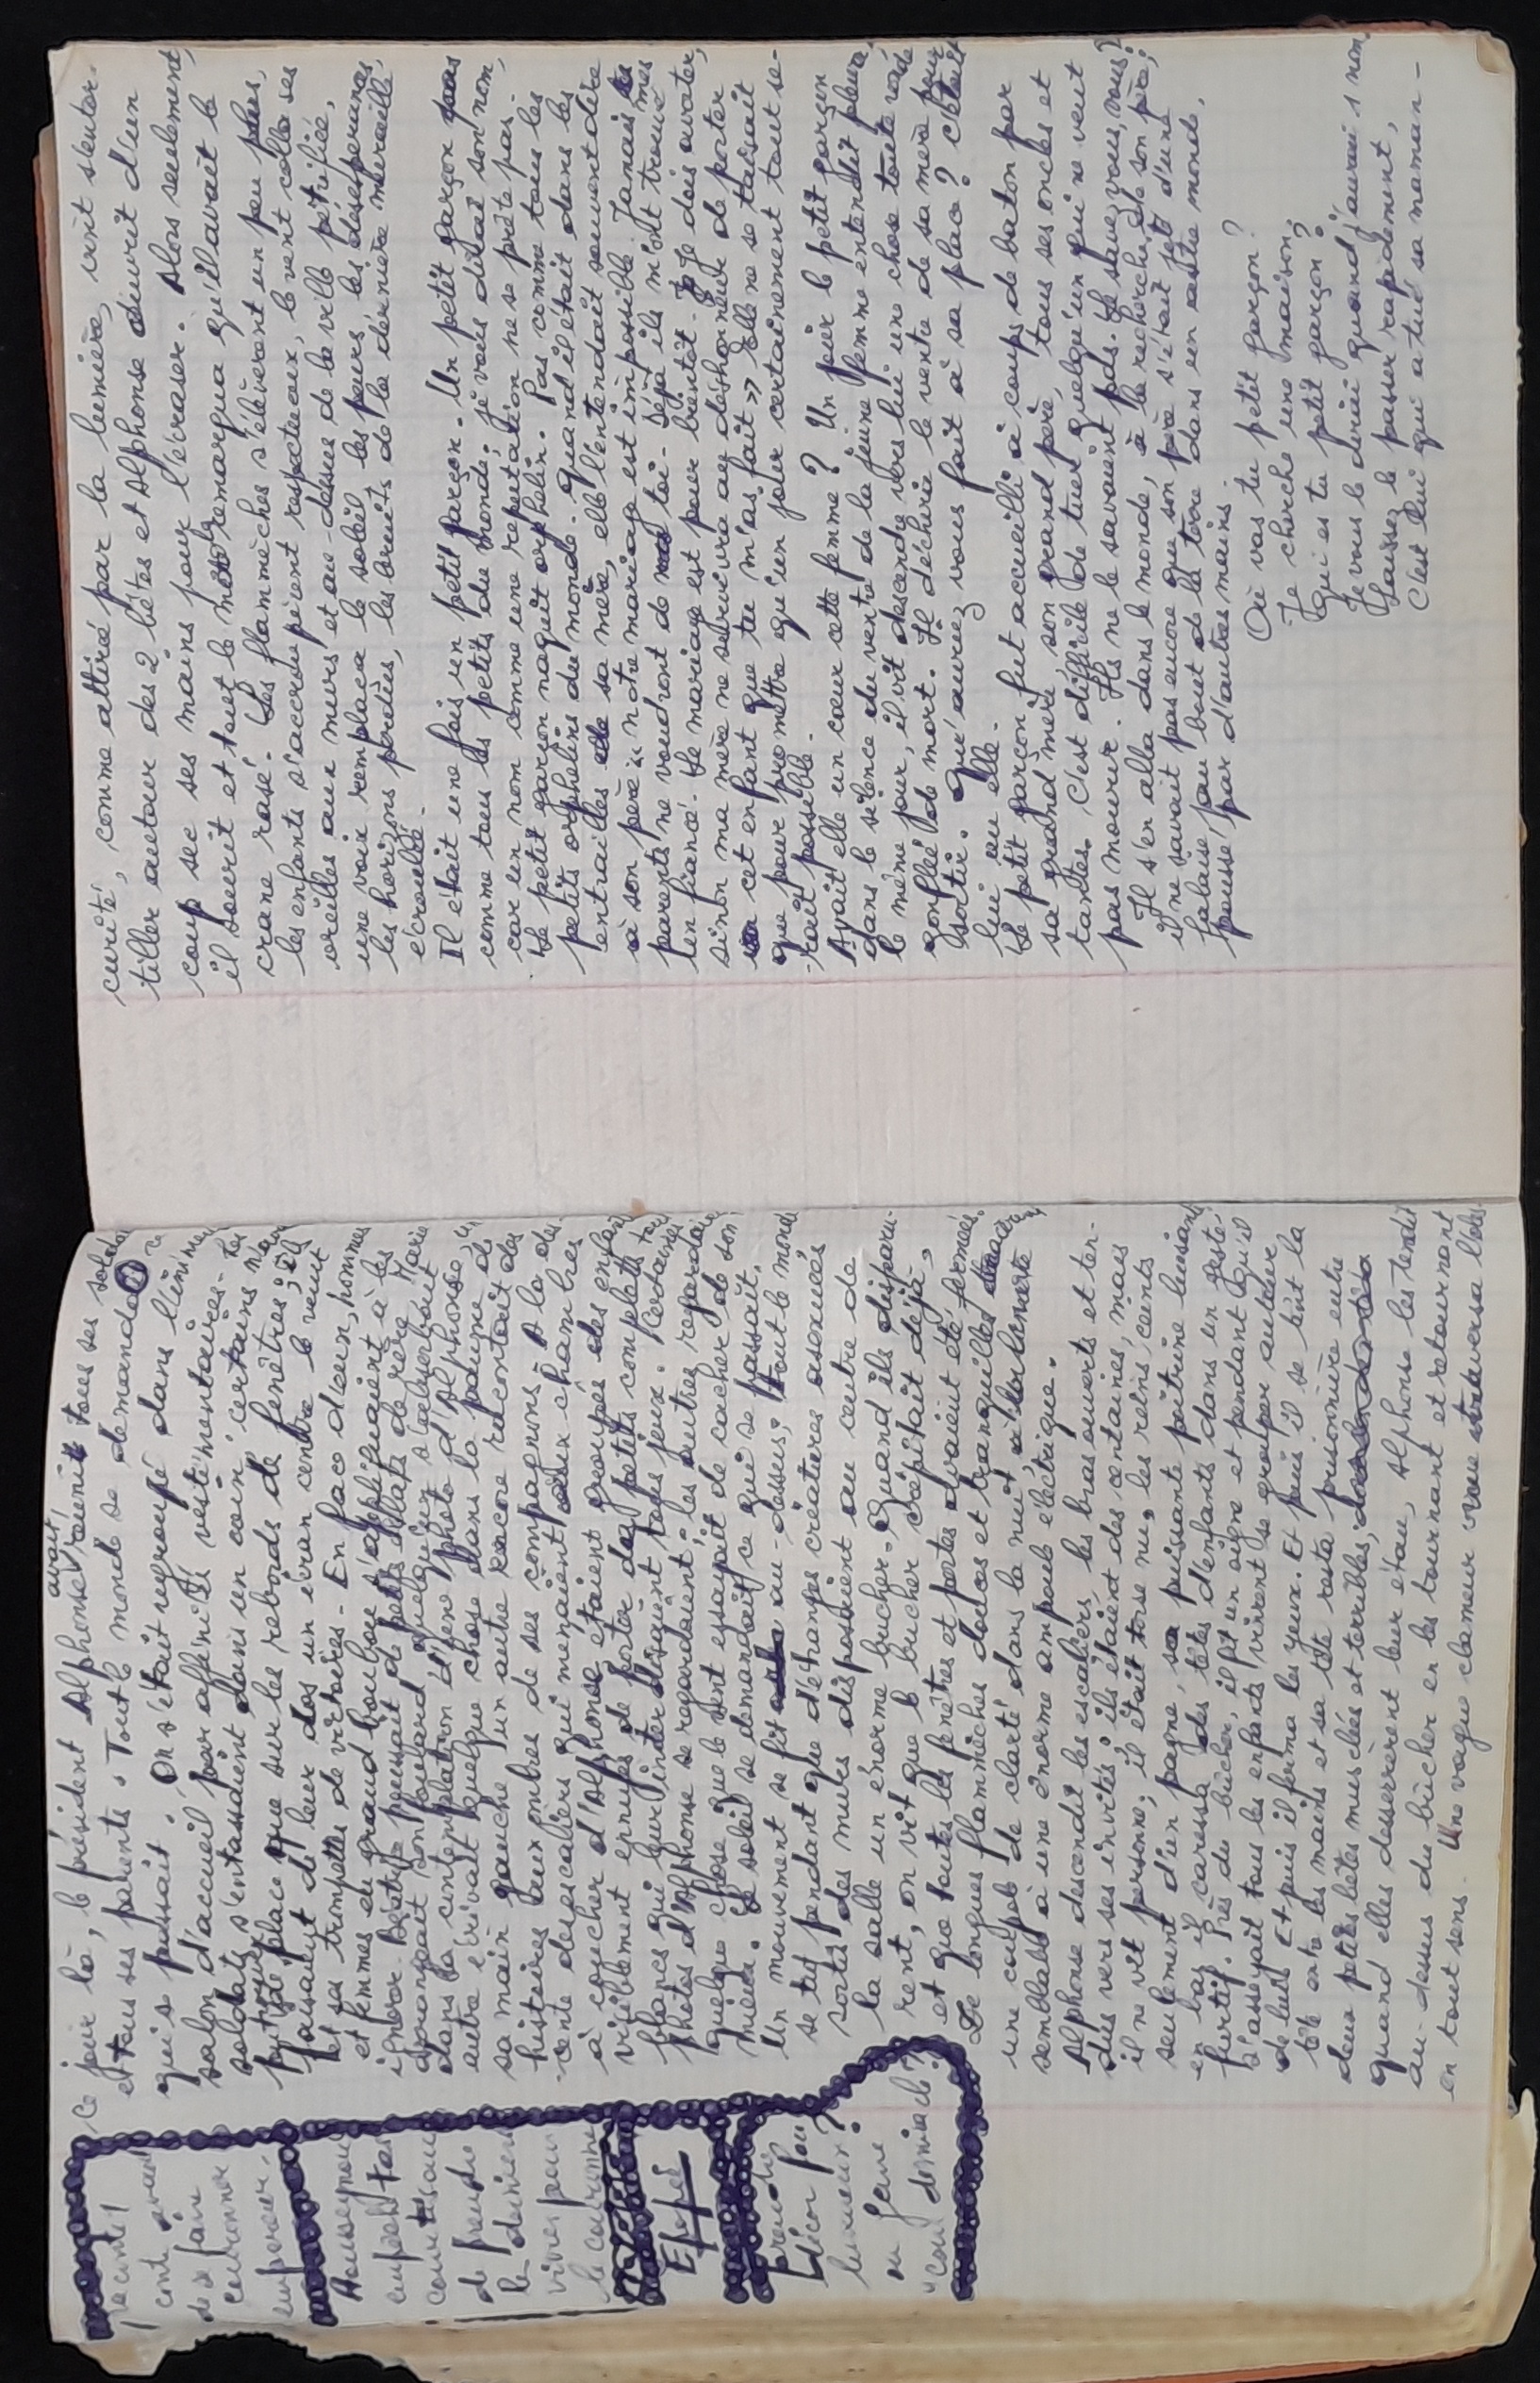 Ce jour là, le président Alphonse avait réunit tous ses soldats
et tous ses parents. Tout le monde se demanda
qui s passait. On s'était regroupé dans l'
salon d'accueil par affinité vestimentaires. Les
soldats s'entassaient dans un coin, certains
place que sur les rebords de fenêtres;
faisaient de leur dos un écran contre le vent
et ses trompettes de victoires. En face d'eux, hommes
et femmes du grand boubou s'appliquaient à les
ignorer. Béatrice poussait de petits éclats de rire, Marie
arrangeait son foulard, quelqu'un s'absorbait
dans la contemplation d'une photo d'Alphonse, un
autre écrivait quelque chose dans la paume de
sa main gauche, un autre encore racontait des
histoires aux ombres de ses compagnons. A la des-
cente des escaliers qui menaient aux chambres
à coucher d'Alphonse, étaient groupés des enfants
visiblement ennuyés de porter de petits complets
blancs qui leur interdisaient tous jeux. Certaines
photos d'Alphonse se regardaient; les autres regardaient
quelque chose que le vent essayait de cacher de son
mieux. Le soleil se demandait ce qui se passait.
Un mouvement se fit au-dessus; tout le monde
se tut pendant que d'étranges créatures asexuées
sorties des murs disposaient au centre de
la salle un énorme bucher. Quand ils disparu-
rent, on vit que le bucher crépitait déjà,
et que toutes les fenêtres et portes avaient été fermées.
De longues flammèches douces et tranquilles
une coupole de clarté dans la nuit
semblable à une énorme ampoule électrique.
Alphonse descendit les escaliers, les bras ouverts et ten-
dus vers ses invités; ils étaient des centaines, mais
il ne vit personne; il était torse nu, les reins ceints
seulement d'un pagne, sa puissante poitrine luisant
en bas, il caressa des têtes d'enfants dans un geste
furtif. Près du bûcher, il fit un signe et pendant qu'il
s'asseyait tous les enfants vinrent se grouper autour
de lui. Et puis il ferma les yeux. Et puis il se tint la
tête entre les mains et sa tête resta prisonnière entre
deux petites bêtes musclées et terribles;
quand elles desserrèrent leur étau, Alphonse les tendit
au-dessus du bûcher en les tournant et retournant
en tout sens. Une vague clameur vous traversa
cont avec
de se faire
couronner
empereur.
courtisans
de prendre
le dernier
vivres pour
le couronne
Epopée
prendre
Lucon pour
lumineux?
ou Jeune
curité, comme attirée par la lumière, vint s'enter-
tiller autour des 2 bêtes et Alphonse ouvrit d'un
coup sec ses mains pour l'écraser. Alors seulement,
il sourit et tout le monde remarqua qu'il avait le
crane rasé. Les flammèches s'élevèrent un peu plus,
les enfants s'accroupirent respectueux, le vent colla ses
oreilles aux murs et au-dessus de la ville pétrifiée,
une voix remplaça le soleil, les peurs, les désespérances,
les horizons perdus, les bruits de la dernière merveille
ecroulée.
Il était une fois un petit garçon. Un petit garçon
comme tous les petits du monde. je vous dirai son nom,
car un nom comme une réputation ne se prête pas.
Le petit garçon naquit orphelin. Pas comme tous les
petits orphelins du monde. quand il était dans les
entrailles de sa mère, elle l'entendait souvent dire
à son père «notre mariage est impossible. Jamais mes
parents ne voudront de toi. Déjà ils m'ont trouvé
un fiancé. Le mariage est pour bientôt. Je dois avorter,
sinon ma mère ne survivra au déshonneur de porter
cet enfant que tu m'as fait» Elle ne se taisait
que pour promettre qu'un jour certainement tout se-
rait possible.
Avait elle un cœur cette femme? Un jour le petit garçon
dans le silence du ventre de la jeune femme entendit pleurer.
le même jour, il vit descendre vers lui une chose toute raide
gonflée de mort. Il déchira le ventre de sa mère pour
sortir. Qu'auriez vous fait à sa place? C'était
lui ou elle.
Le petit garçon fut accueilli à coups de baton par
sa grand mère, son grand père, tous ses oncles et
tantes. C'est difficile de tuer quelqu'un qui ne veut
pas mourir. Ils ne le savaient pas. Le savez vous, vous?
Il s'en alla dans le monde, à la recherche de son père;
il ne savait pas encore que son père s'était jeté d'une
falaise, au bout de la terre dans un autre monde,
poussé par d'autres mains.
Où vas tu petit garçon?
-Je cherche une maison.
qui es tu petit garçon?
Je vous le dirai quand j'aurai 1 nom.
Laissez le passer rapidement,
C'est lui qui a tué sa maman-